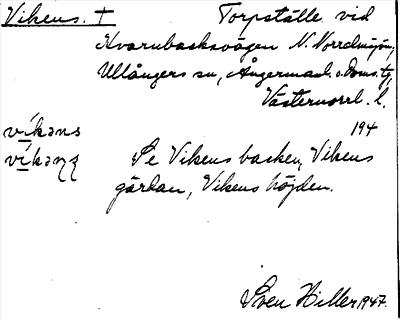 Vikens. † Torpställe vid
Kvarnbacksvägen N. Norrdingrå,
Ullångers sn, Ångermanl. o. Doms. ty,
Västernorrl. l.
víkəns 194
víkəɳʂ Se Vikens backen, Vikens
gärdan, Vikens höjden.
Sven Hiller 1947.